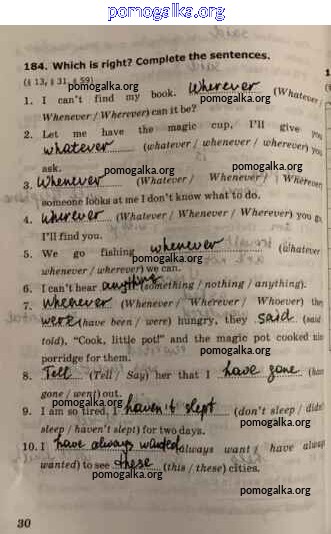 pomogalka.org
184. Which is right? Complete the sentences.
(§ 13, § 31, § 59)
1. I can't find my book. Wherever (Whatever /
pomogalka.org
Whenever / Wherever) can it be?
2. Let me have the magic cup, I'll give you
whatever (whatever / whenever / wherever) you
pomogalka.org
ask.
pomogalka.org
3. Whenever (Whatever / Whenever / Wherever)
someone looks at me I don't know what to do.
pomogalka.org
4. Wherever (Whatever / Whenever / Wherever) you go
I'll find you.
pomogalka.org
5. We go fishing whenever (whatever /
whenever / wherever) we can.
pomogalka.org
6. I can't hear anything (something / nothing / anything).
7. Whenever (Whenever / Wherever / Whoever) they
pomogalka.org
were (have been / were) hungry, they said (said /
told), "Cook, little pot!" and the magic pot cooked
pomogalka.org
porridge for them.
8. Tell (Tell / Say) her that I have gone (have
pomogalka.org
gone / went) out.
9. I am so tired, I haven't slept (don't sleep / didn't
pomogalka.org
sleep / haven't slept) for two days.
10. I have always wanted (always want / have always
pomogalka.org
wanted) to see these (this / these) cities.
pomogalka.org
30
pomogalka.org